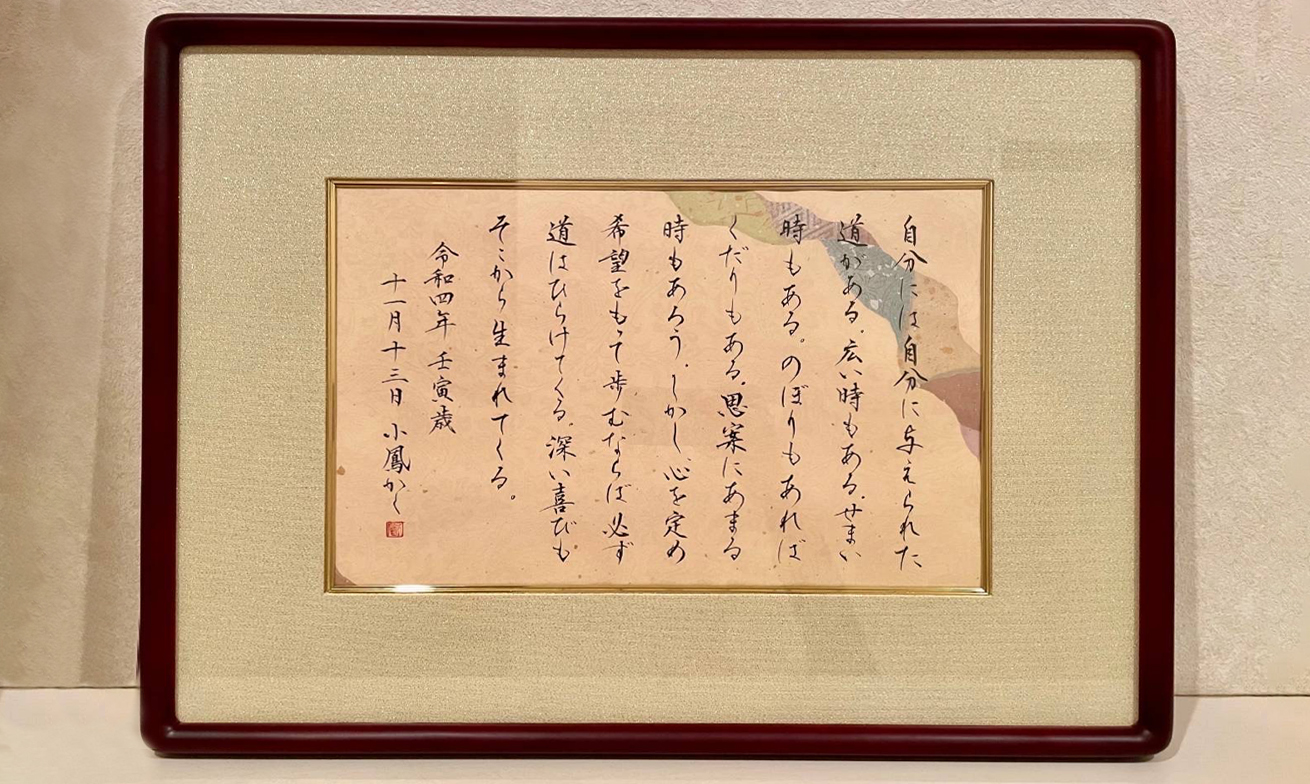 自分には自分に与えられた
道がある。広い時もある。せまい
時もある。のぼりもあれば
くだりもある。思案にあまる
時もあろう。しかし、心を定め
希望をもって歩むならば必ず
道はひらけてくる。深い喜びも
そこから生まれてくる。
令和四年 壬寅歳
十一月十三日 小鳳かく